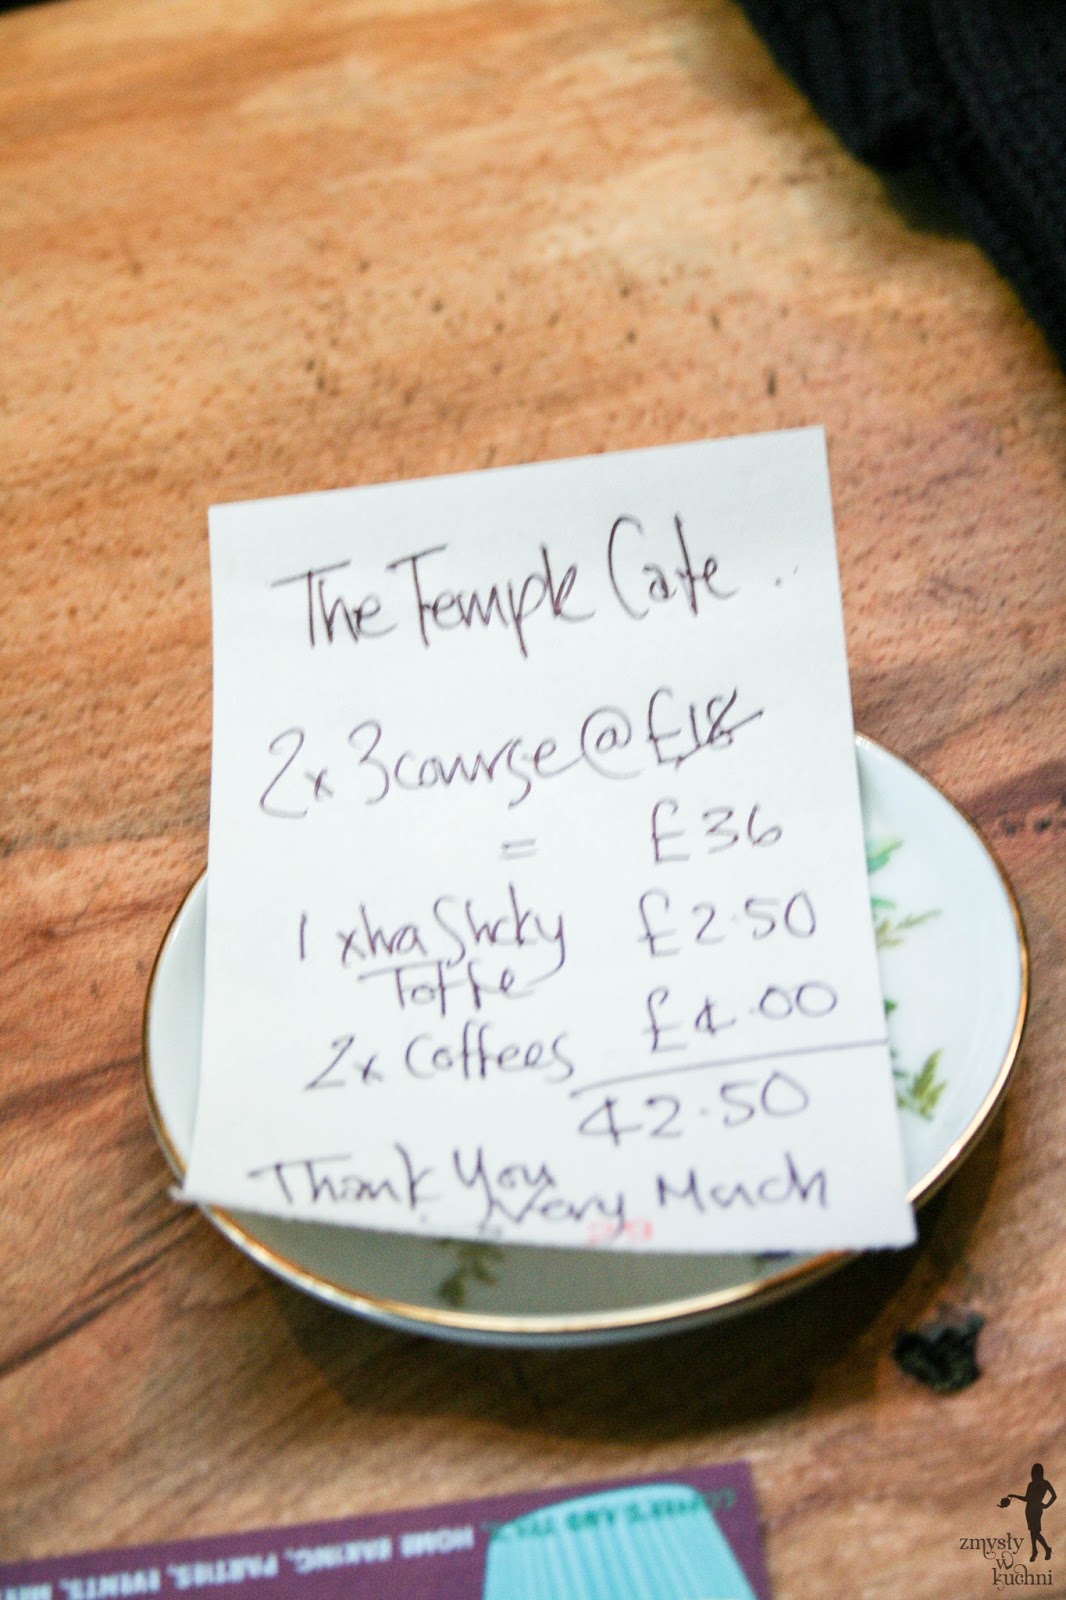 The Temple Cafe
2x 3course @ £18
= £36
1 xtra Sticky £2.50
Toffe
2x Coffees £4.00
42.50
Thank You
Very Much
29
COFFEES AND TEAS,
HOME BAKING, PARTIES, EVENTS,
zmysły
w
kuchni